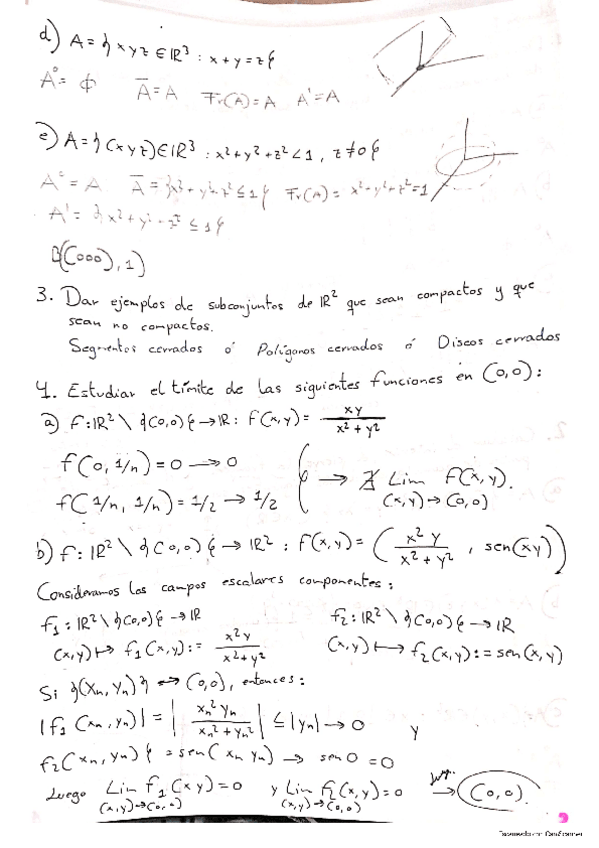 d) A = { x y z ∈ IR³ : x + y = z }
A° = ϕ   Ā = A   Fr(A) = A   A' = A
e) A = { (x y z) ∈ IR³ : x² + y² + z² < 1 , z ≠ 0 }
A° = A   Ā = { x² + y² + z² ≤ 1 }   Fr(A) = x² + y² + z² = 1
A' = { x² + y² + z² ≤ 1 }
B((000), 1)
3. Dar ejemplos de subconjuntos de IR² que sean compactos y que
sean no compactos.
Segmentos cerrados ó Polígonos cerrados ó Discos cerrados
4. Estudiar el límite de las siguientes funciones en (0,0):
a) f: IR² \ {(0,0)} → IR : f(x,y) = xy / (x² + y²)
f(0, 1/n) = 0 → 0
f(1/n, 1/n) = 1/2 → 1/2   → ∄ Lim f(x,y).
(x,y) → (0,0)
b) f: IR² \ {(0,0)} → IR² : f(x,y) = ( x² y / (x² + y²) , sen(xy) )
Consideramos los campos escalares componentes:
f₁ : IR² \ {(0,0)} → IR   f₂ : IR² \ {(0,0)} → IR
(x,y) ↦ f₁(x,y) := x²y / (x² + y²)   (x,y) ↦ f₂(x,y) := sen(x,y)
Si {(xₙ, yₙ)} → (0,0), entonces:
|f₁(xₙ, yₙ)| = | xₙ² yₙ / (xₙ² + yₙ²) | ≤ |yₙ| → 0   y
f₂(xₙ, yₙ) } = sen(xₙ yₙ) → sen 0 = 0
Luego Lim f₁(x y) = 0   y Lim f₂(x,y) = 0   → (0,0).
(x,y) → (0,0)   (x,y) → (0,0)
Escaneado con CamScanner